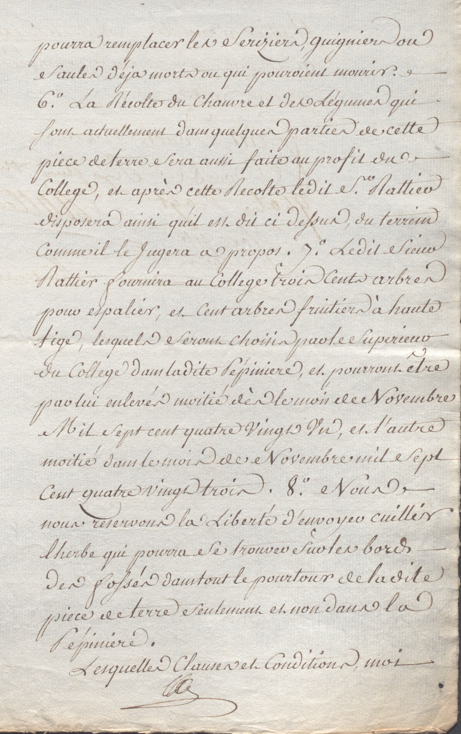 pourra remplacer les Serisiers, guigniers ou
Saules déja morts ou qui pouroient mourir.
6.º La Récolte du Chanvre et des Légumes qui
sont actuellement dans quelques parties de cette
piece de terre sera aussi faite au profit du
College, et après cette Recolte ledit S.ʳ Rattier
disposera ainsi quil est dit ci dessus, du terrein
comme il le Jugera a propos. 7.º Ledit Sieur
Rattier fournira au College trois Cents arbres
pour espalier, et Cent arbres fruitiers à haute
tige, lesquels seront choisis par le Superieur
du College dans ladite Pépiniere, et pourront être
par lui enlevés moitié dès le mois de Novembre
Mil Sept cent quatre Vingt Un, et l'autre
moitié dans le mois de Novembre mil Sept
Cent quatre vingt trois. 8.º Nous
nous réservons la Liberté d'envoyer cuillir
l'herbe qui pourra se trouver sur les bords
des fossés dans tout le pourtour de ladite
piece de terre seulement et non dans la
Pépiniere.
Lesquelles Clauses et Conditions, moi